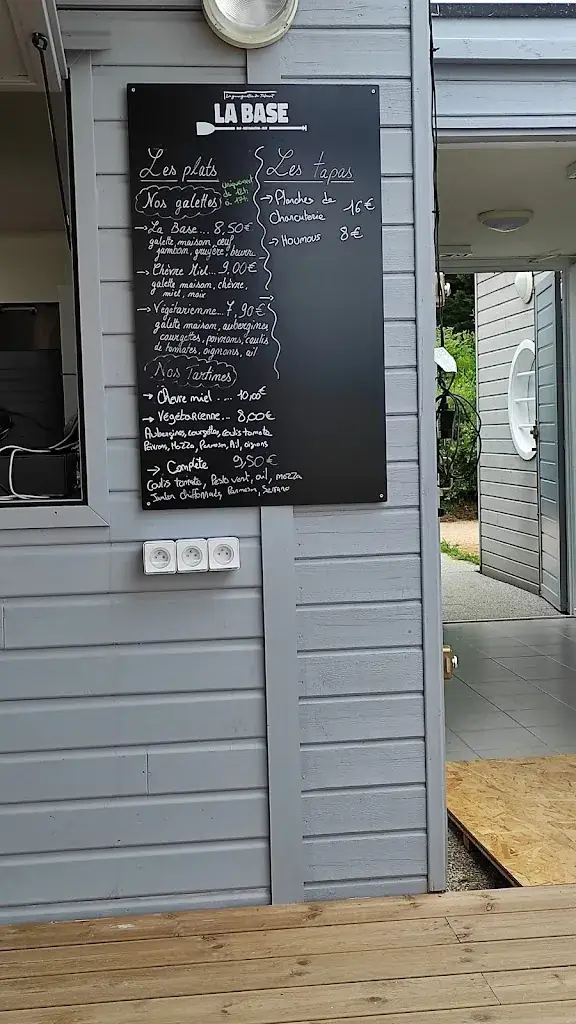 LA BASE
Les plats
Nos galettes
uniquement
de 12h
à 17h.
→ La Base... 8,50€
galette maison, œuf,
jambon, gruyère, beurre
→ Chèvre Miel... 9,00€
galette maison, chèvre,
miel, noix
→ Végétarienne... 7,90€
galette maison, aubergines,
courgettes, poivrons, coulis
de tomates, oignons, ail
Nos Tartines
→ Chevre miel .... 10,00€
→ Végétarienne... 8,00€
Aubergines, courgettes, coulis tomate
Poivrons, Mozza, Parmesan, Ail, oignons
→ Complète 9,50€
Coulis tomate, Pesto vert, ail, mozza
Jambon chiffonnade, Parmesan, Serrano
Les tapas
→ Planches de
Charcuterie 16€
→ Houmous 8€